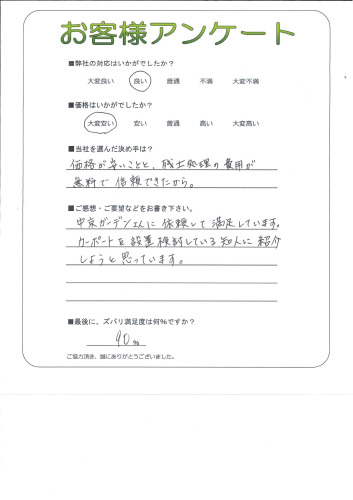 お客様アンケート
■弊社の対応はいかがでしたか?
大変良い 良い 普通 不満 大変不満
■価格はいかがでしたか?
大変安い 安い 普通 高い 大変高い
■当社を選んだ決め手は?
価格が安いことと、残土処理の費用が
無料で信頼できたから。
■ご感想・ご要望などをお書き下さい。
中京ガーデンさんに依頼して満足しています。
カーポートを設置検討している知人に紹介
しようと思っています。
■最後に、ズバリ満足度は何%ですか?
90%
ご協力頂き、誠にありがとうございました。